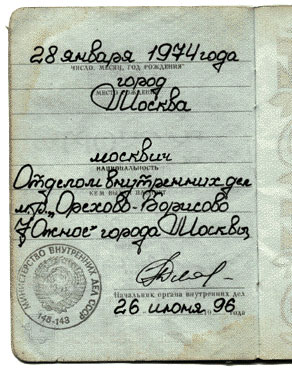 28 января 1974 года
ЧИСЛО, МЕСЯЦ, ГОД РОЖДЕНИЯ
город
МЕСТО РОЖДЕНИЯ
Москва
москвич
НАЦИОНАЛЬНОСТЬ
Отделом внутренних дел
КЕМ ВЫДАН ПАСПОРТ
м.р. „Орехово-Борисово
Южное" города Москвы
МИНИСТЕРСТВО ВНУТРЕННИХ ДЕЛ СССР
148-143
Начальник органа внутренних дел
26 июня 1996 года